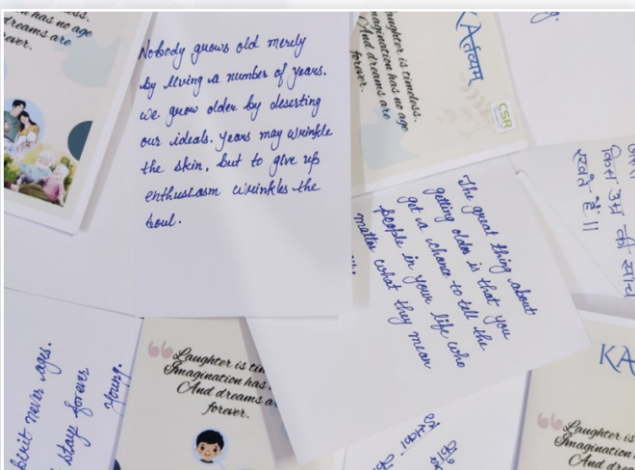 has no age
dreams are
ever.
Nobody grows old merely
by living a number of years.
we grow older by deserting
our ideals. years may wrinkle
the skin, but to give up
enthusiasm wrinkles the
soul.
aughter is timeless.
magination has no age
And dreams are
forever.
KAदयाम
CSR
The great thing about
getting older is that you
get a chance to tell the
people in your life who
matter what they mean
किस उम्र की
रखते हैं॥
never ages.
stay forever
young.
Laughter is tim
Imagination has
And dreams a
forever.
KA
Laughter is
Imagination
And dr